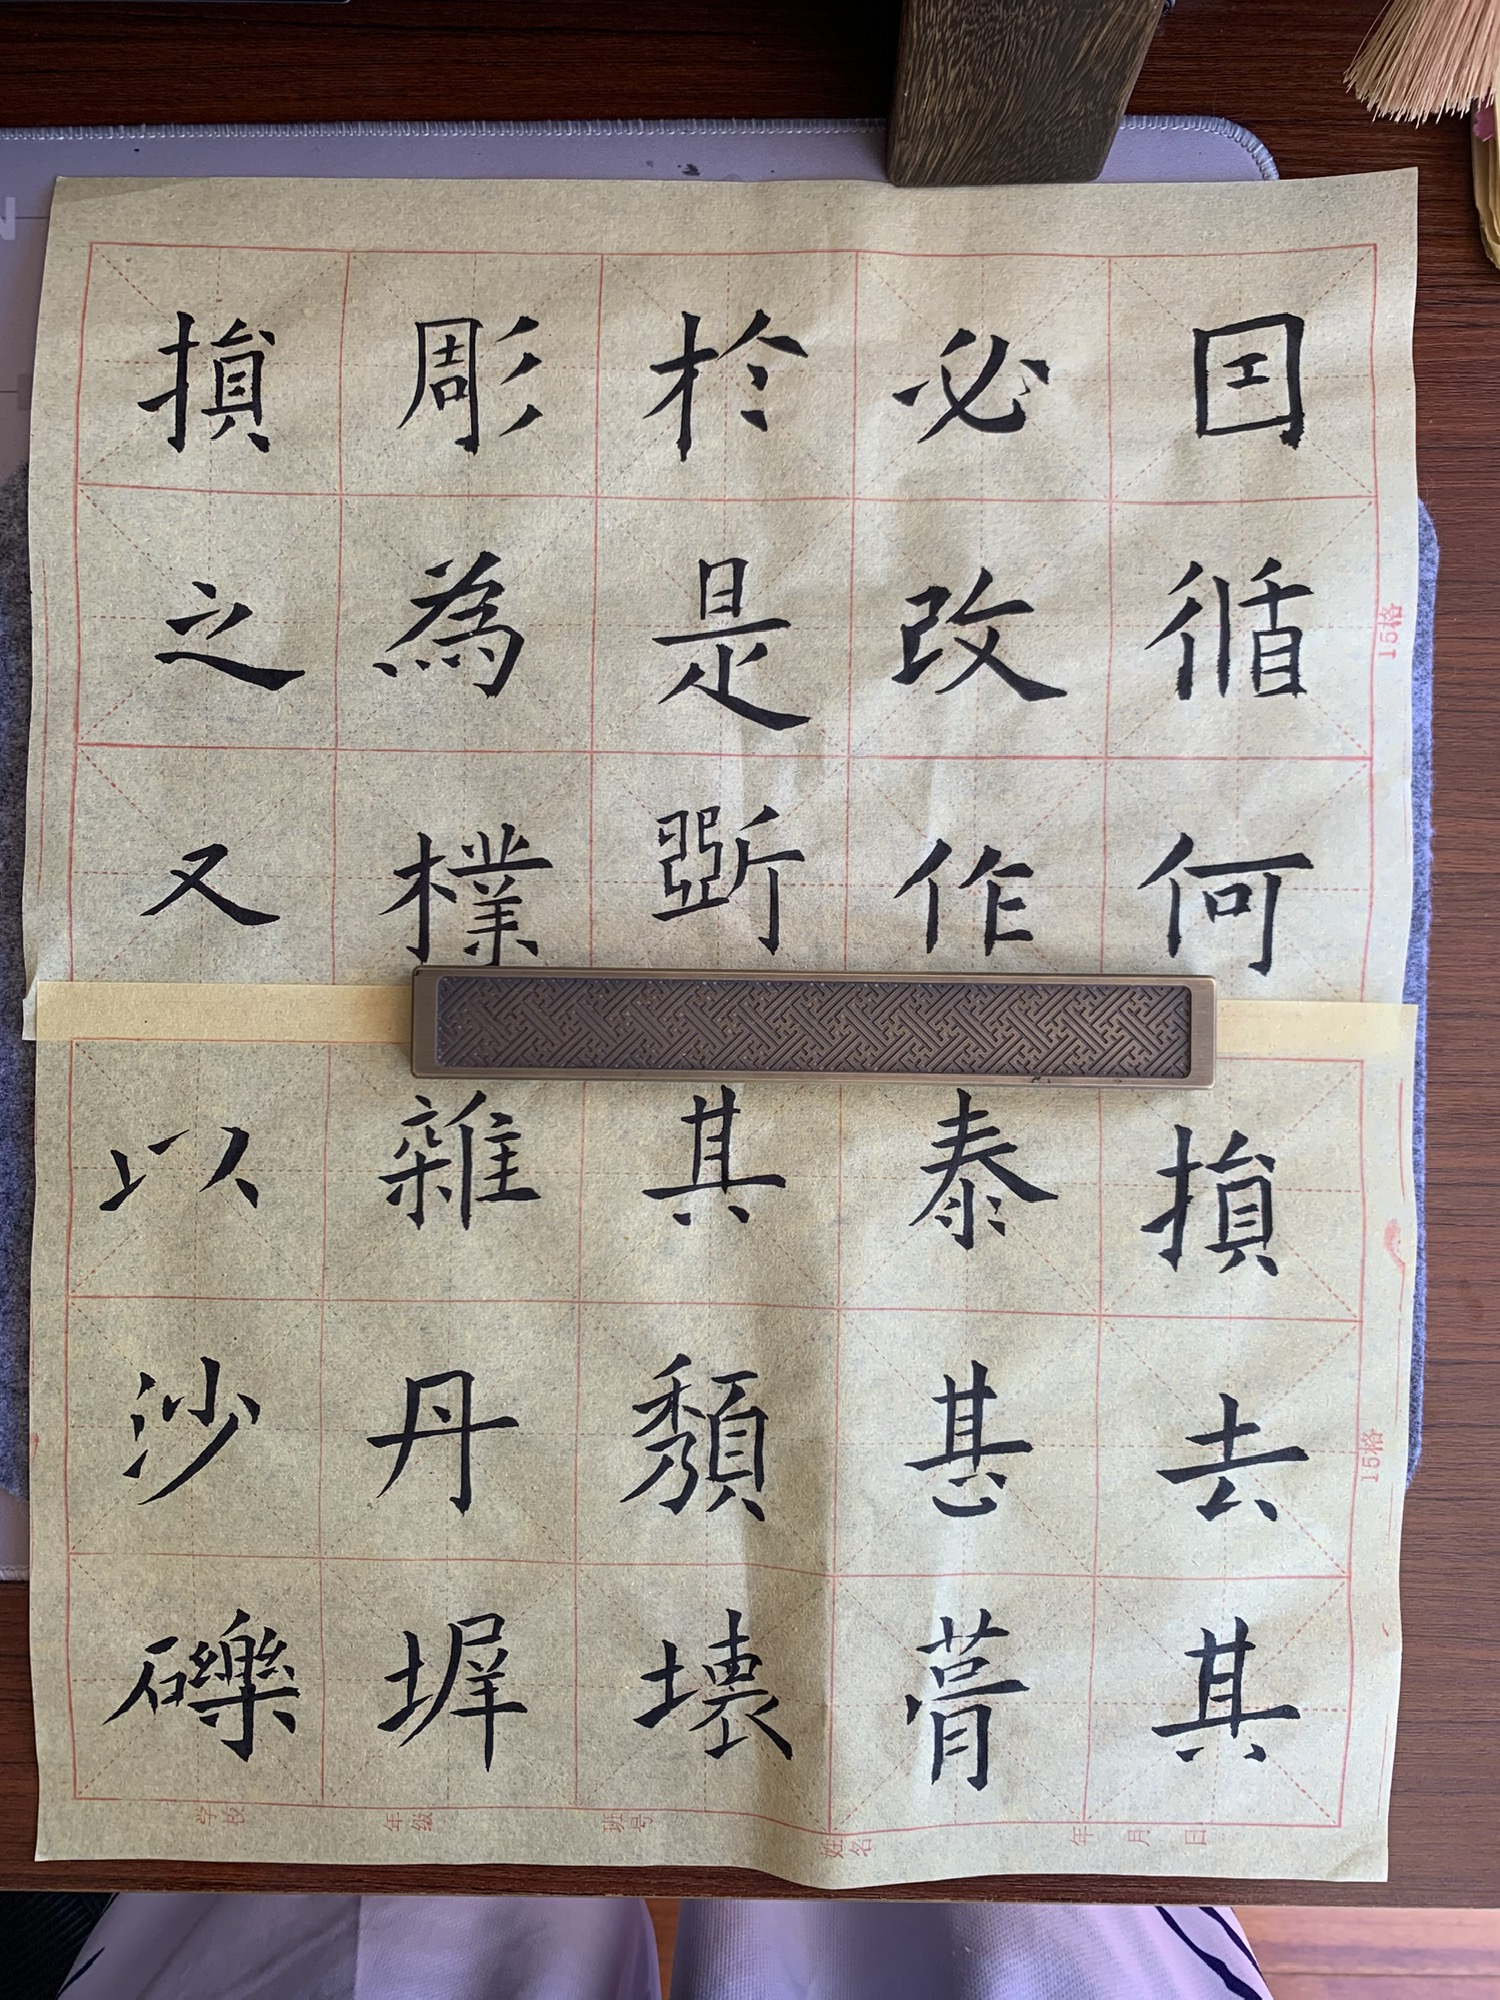 囙循何
必改作
於是斵
彫為樸
損之又
15格
損去其
泰甚葺
其頹壞
雜丹墀
以沙礫
15格
学校 年级 班号 姓名 年 月 日